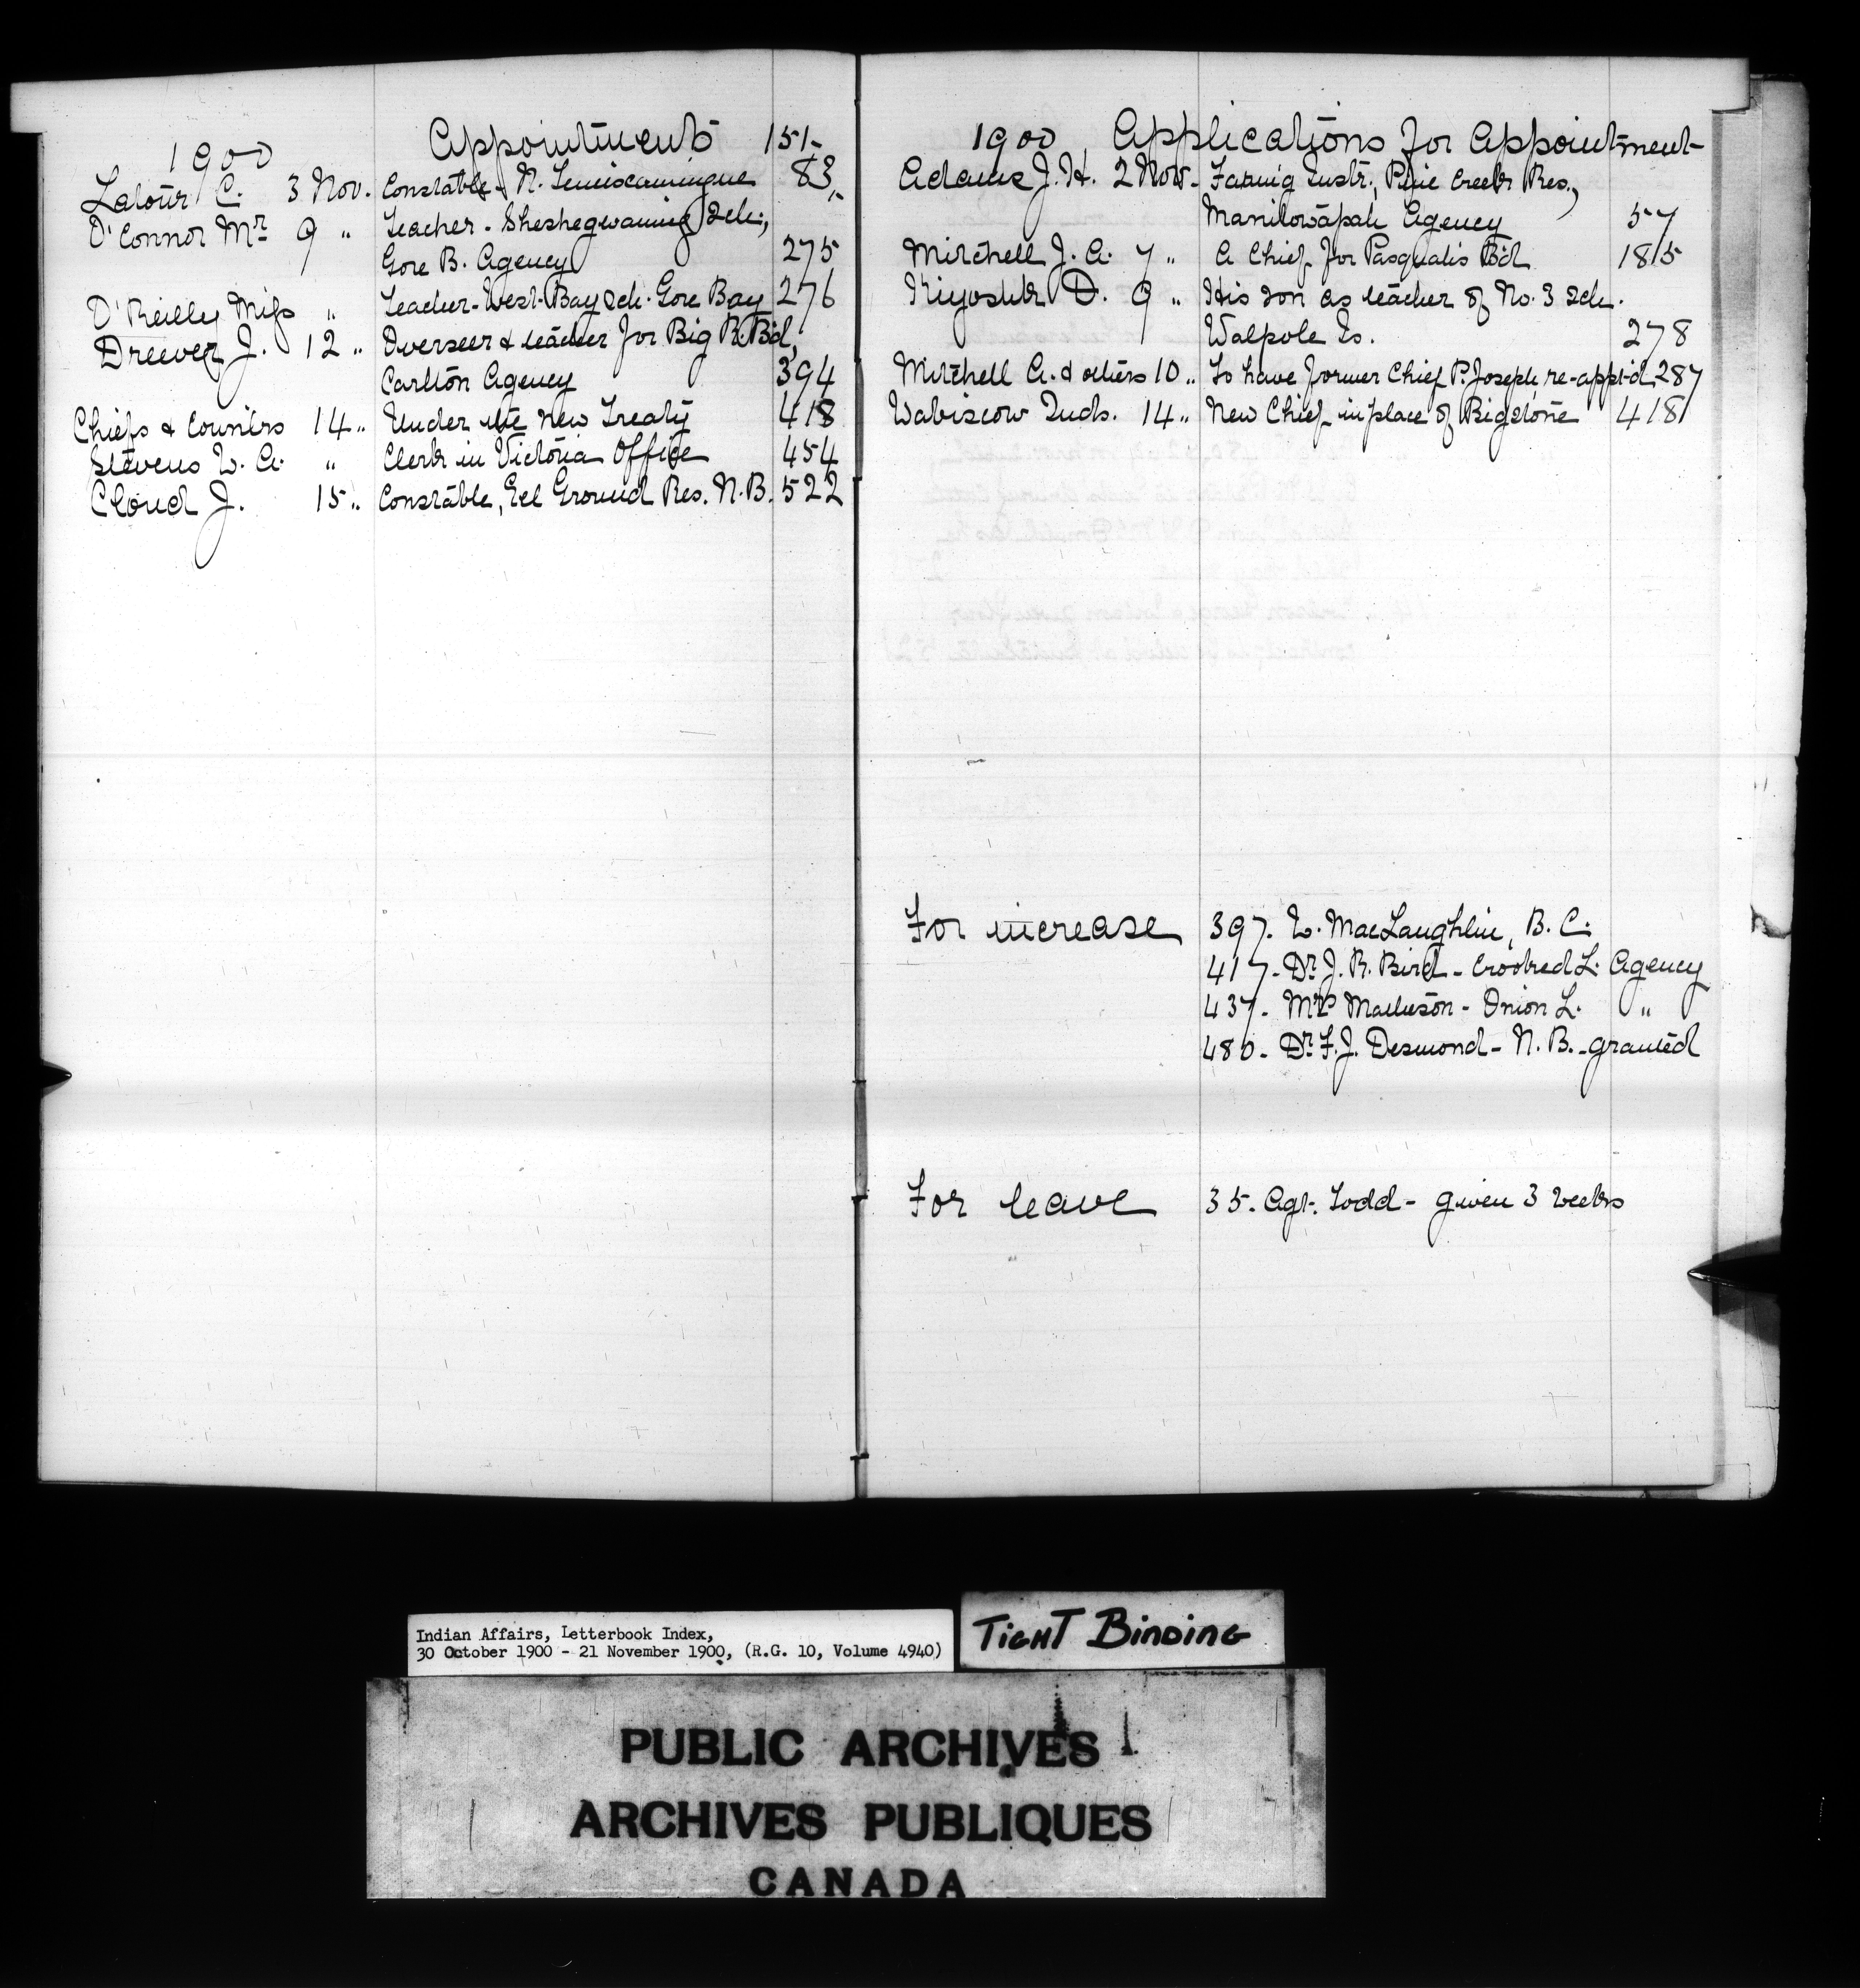 1900 Appointments 151-
Latour C. 3 Nov. Constable - N. Temiscamingue 83,
O'Connor Mr 9 " Teacher - Sheshegwaning Sch.,
Gore B. Agency 275
O'Reilly Miss " Teacher - West Bay Sch. Gore Bay 276
Dreever J. 12 " Overseer & teacher for Big R. Bd,
Carlton Agency 394
Chiefs & Counlrs 14 " Under the New Treaty 418
Stevens W. A. " Clerk in Victoria Office 454
Cloud J. 15 " Constable, Eel Ground Res. N.B. 522
1900 Applications for Appointment-
Adams J. H. 2 Nov - Farmig Instr., Pine Creek Res.,
Manitowapah Agency 57
Mitchell J. A. 7 " A Chief for Pasquahs Bd 185
Kiyoshk D. 9 " His son as teacher of No. 3 Sch.
Walpole Is. 278
Mitchell A. & others 10 " To have former Chief P. Joseph re-appt-d 287
Wabiscow Inds. 14 " New Chief in place of Bigstone 418
For increase 397. W. MacLaughlin, B. C.
417 - Dr J. R. Bird - Crooked L. Agency
437 - Mrs Matheson - Onion L. "
480 - Dr F. J. Desmond - N. B. - granted
For leave 35. Agt. Todd - given 3 weeks
Indian Affairs, Letterbook Index,
30 October 1900 - 21 November 1900, (R.G. 10, Volume 4940)
TIGHT BINDING
PUBLIC ARCHIVES
ARCHIVES PUBLIQUES
CANADA